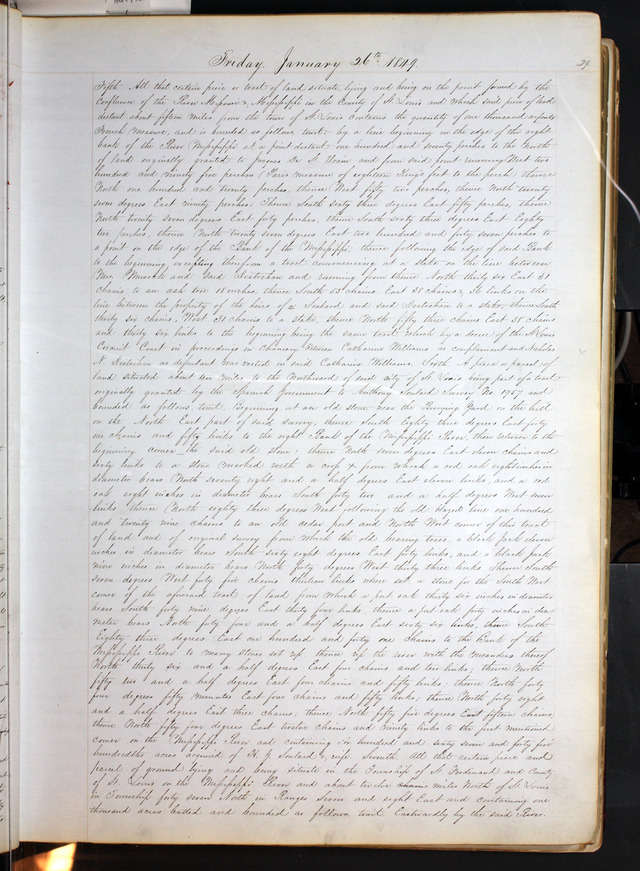 Friday, January 26th 1849
29
Fifth All that certain piece or tract of land situate lying and being on the point formed by the
Confluence of the River Missouri & Mississippi in the County of St Louis and which said piece of land
distant about fifteen miles from the town of St Louis contains the quantity of one thousand arpents
French measure, and is bounded as follows towit: by a line beginning on the edge of the right
bank of the River Mississippi at a point distant one hundred and seventy perches to the North
of land originally granted to St Vrain and from said point running West two
hundred and ninety five perches (Paris measure of eighteen Kings feet to the perch) thence
North one hundred and twenty perches, thence West fifty two perches, thence North twenty
seven degrees East ninety perches, Thence South sixty three degrees East fifty perches, thence
North twenty seven degrees East forty perches, thence South sixty three degrees East Eighty
two perches, thence North twenty seven degrees East two hundred and forty seven perches to
a point on the edge of the Bank of the Mississippi thence following the edge of said Bank
to the beginning excepting therefrom a tract commencing at a stake on the line between
Wm and said and running from thence North thirty six East 31
chains to an ash tree inches, thence South 53 chains East 38 chains & 36 links on the
line between the property of the heirs of Soulard and said to a stake, thence South
thirty six chains, West 31 chains to a stake, thence North fifty three chains East 38 chains
and thirty six links to the beginning being the same tract which by a decree of the St Louis
Circuit Court in proceedings in chancery between Catharine Williams as complainant and
N as defendant was vested in said Catharine Williams. Sixth A piece or parcel of
land situated about two miles to the Northward of said city of St Louis being part of a tract
originally granted by the Spanish Government to Anthony Soulard Survey No 1957 and
bounded as follows towit. Beginning at an old stone near the Burying Yard on the hill
on the North East part of said survey, thence South Eighty three degrees East forty
one chains and fifty links to the right Bank of the Mississippi River, then return to the
beginning corner the said old stone: thence North seven degrees East eleven chains and
sixty links to a stone marked with a cross + from which a red oak eighteen inches in
diameter bears North seventy eight and a half degrees East eleven links, and a red
oak eight inches in diameter bears South forty two and a half degrees West nine
links thence North eighty three degrees West following the old line one hundred
and twenty nine chains to an old cedar post and North West corner of this tract
of land and of original survey from which the old bearing trees, a black jack eleven
inches in diameter bears South sixty eight degrees East forty links, and a black jack
nine inches in diameter bears North forty degrees West thirty three links Thence South
seven degrees West forty five chains thirteen links where set a stone for the South West
corner of the aforesaid tract of land from which a post oak thirty six inches in diameter
bears South forty nine degrees East thirty four links, thence a post oak forty inches in dia-
meter bears North forty four and a half degrees East sixty six links, thence South
Eighty three degrees East one hundred and forty one chains to the Bank of the
Mississippi River to many stones set up thence up the river with the meanders thereof
North thirty six and a half degrees East four chains and ten links; thence North
fifty two and a half degrees East four chains and fifty links; thence North forty
four degrees fifty minutes East four chains and fifty links; thence North forty eight
and a half degrees East three chains, thence North fifty five degrees East fifteen chains,
thence North fifty four degrees East twelve chains and ninety links to the first mentioned
corner on the Mississippi River and containing six hundred and sixty seven and forty five
hundredths acres acquired of H. G. Soulard & wife Seventh. All that certain piece and
parcel of ground lying and being situate in the Township of St Ferdinand and County
of St Louis on the Mississippi River and about twelve chains miles North of St Louis
in Township forty seven North in Ranges Seven and eight East and containing one
thousand acres butted and bounded as follows towit. Eastwardly by the said River.